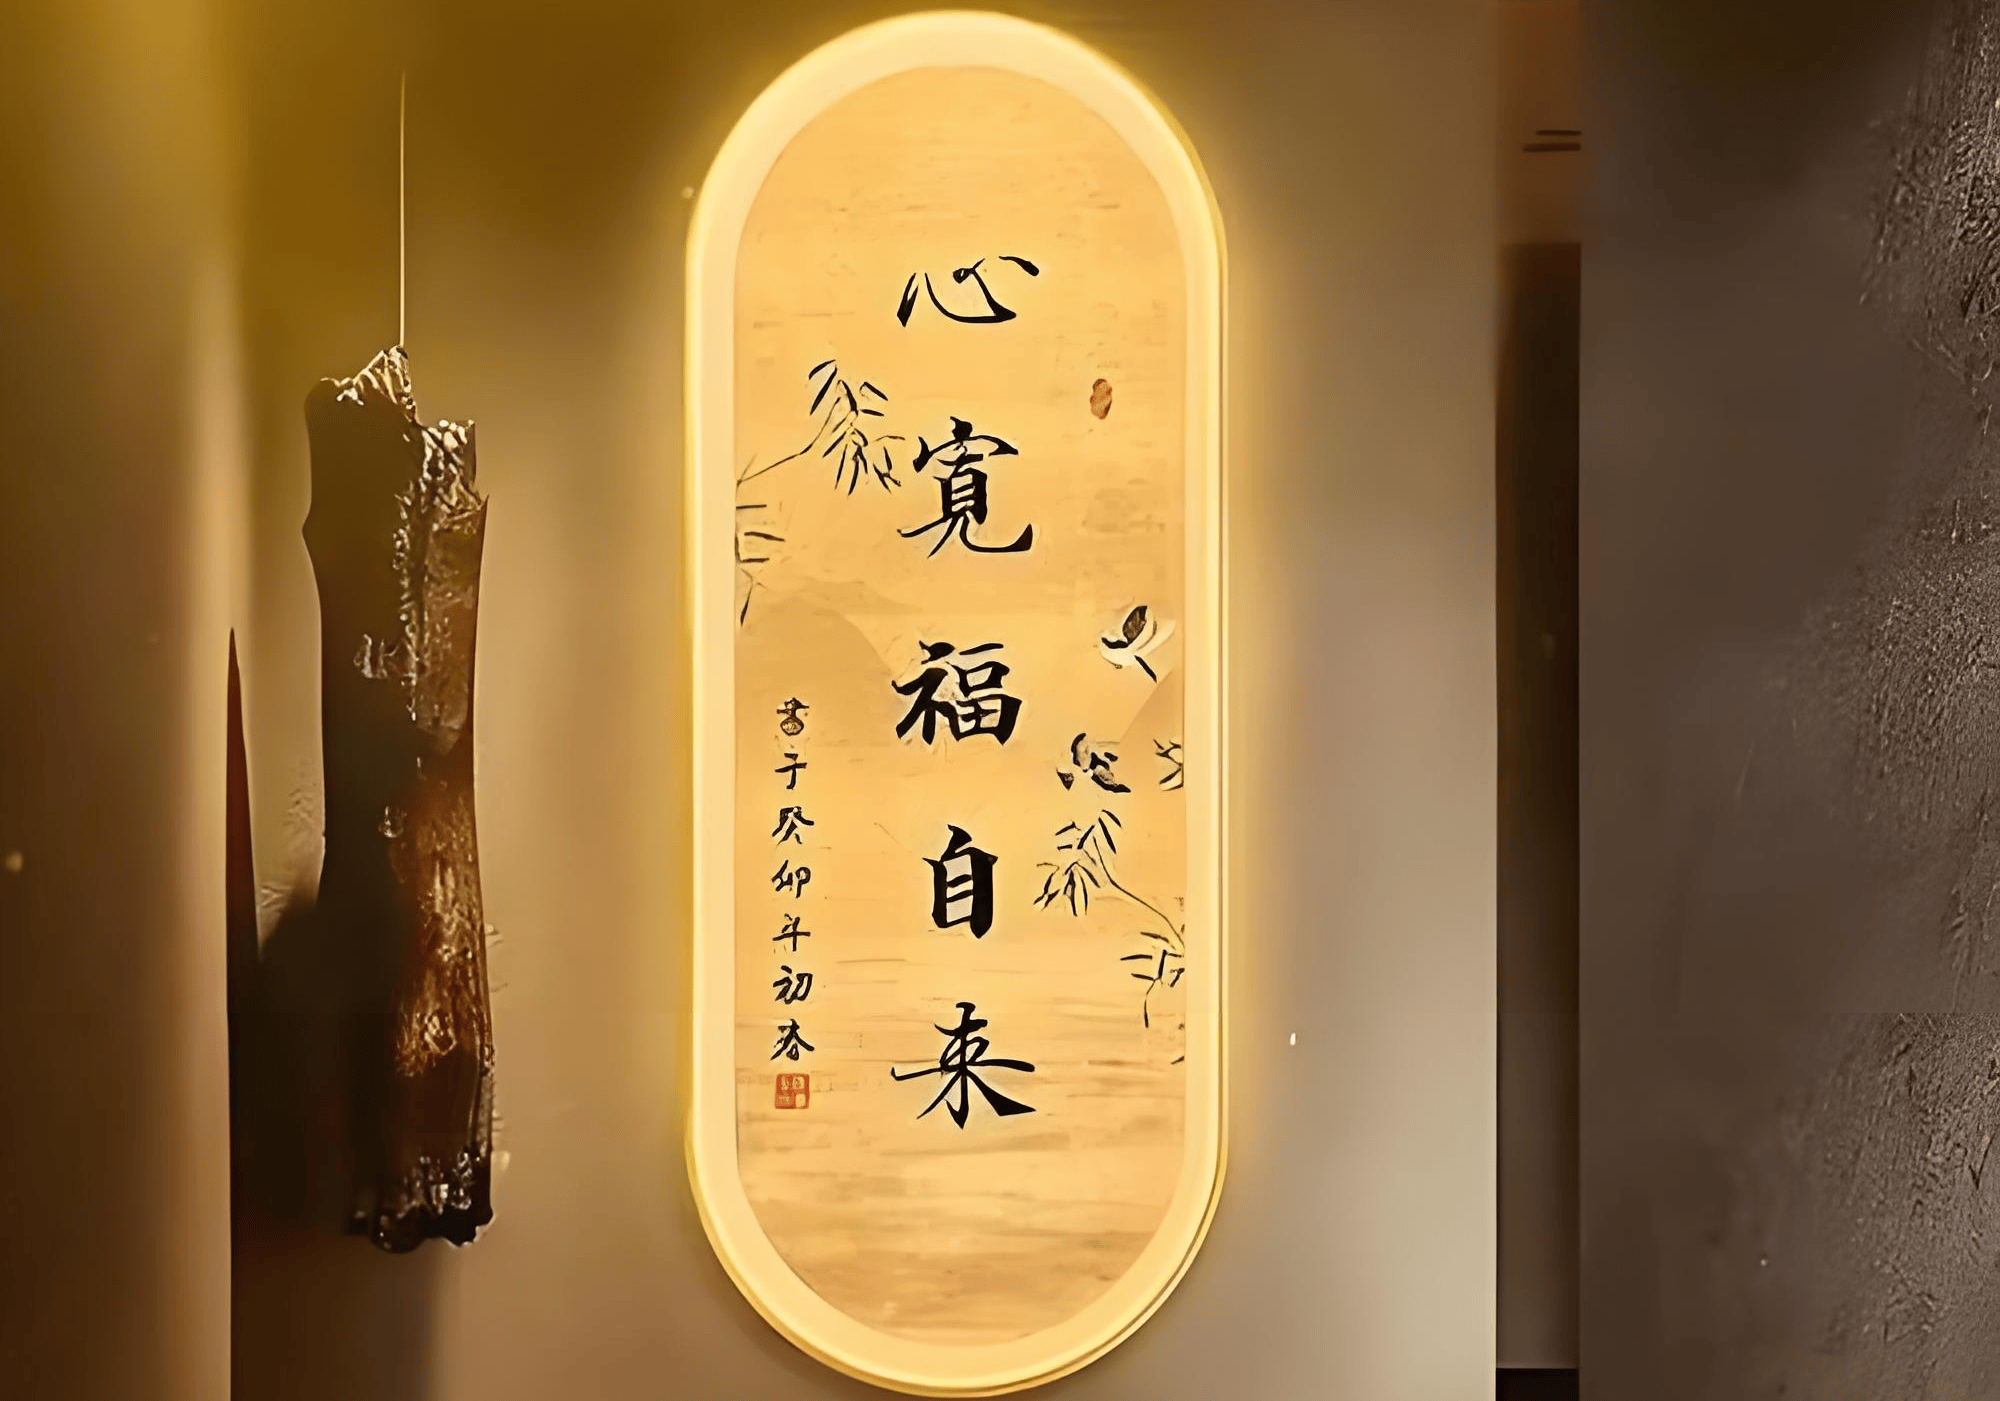 心寛福自来
書于癸卯年初春